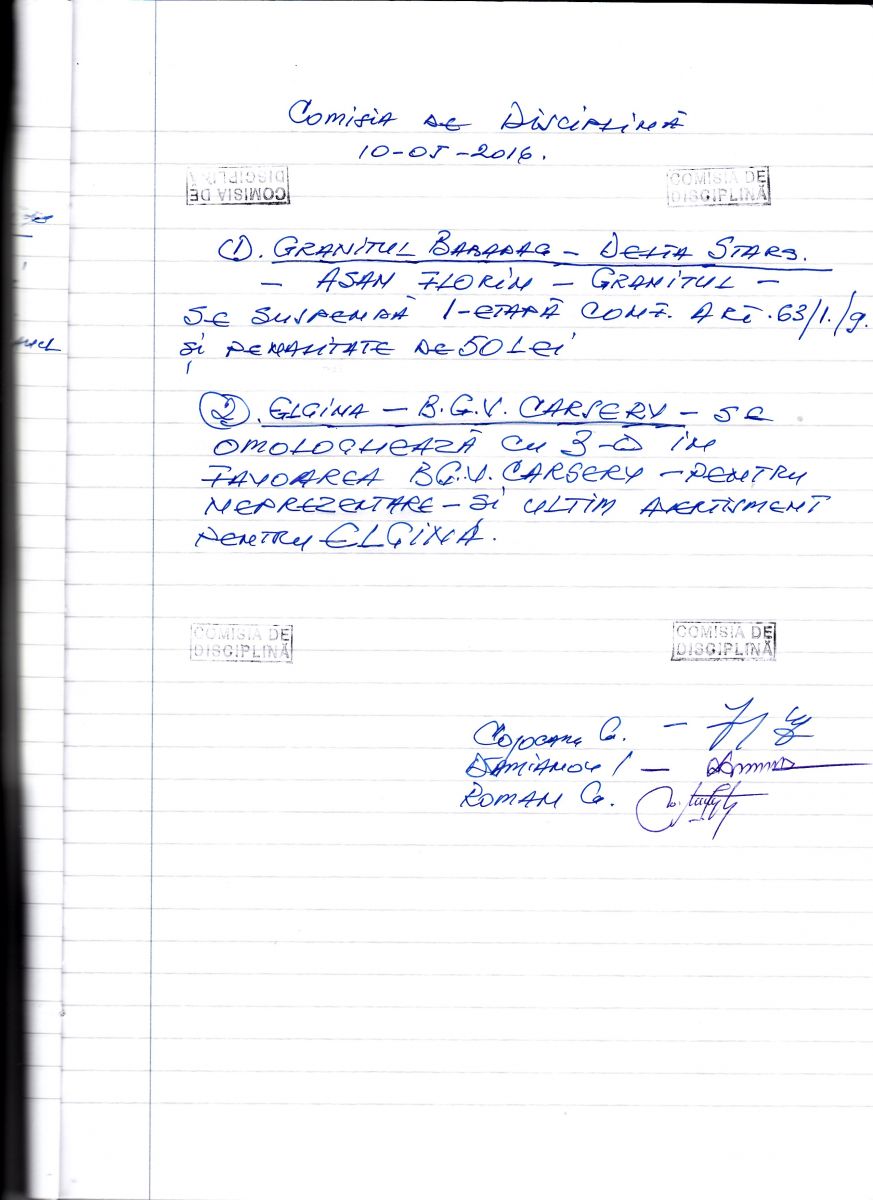 Comisia de Disciplină
10-05-2016.
COMISIA DE
DISCIPLINĂ
COMISIA DE
DISCIPLINĂ
1). GRANITUL BABADAG – DELTA STARS.
– ASAN FLORIN – GRANITUL –
SE SUSPENDĂ 1-ETAPĂ CONF. ART. 63/1./g.
și PENALITATE DE 50 LEI
2). ELGINA – B.G.V. CARSERV – SE
OMOLOGHEAZĂ CU 3-0 IN
FAVOAREA B.G.V. CARSERV – PENTRU
NEPREZENTARE – SI ULTIM AVERTISMENT
PENTRU ELGINA.
COMISIA DE
DISCIPLINĂ
COMISIA DE
DISCIPLINĂ
Cojocaru G. –
DAMIANOV I –
ROMAN G.